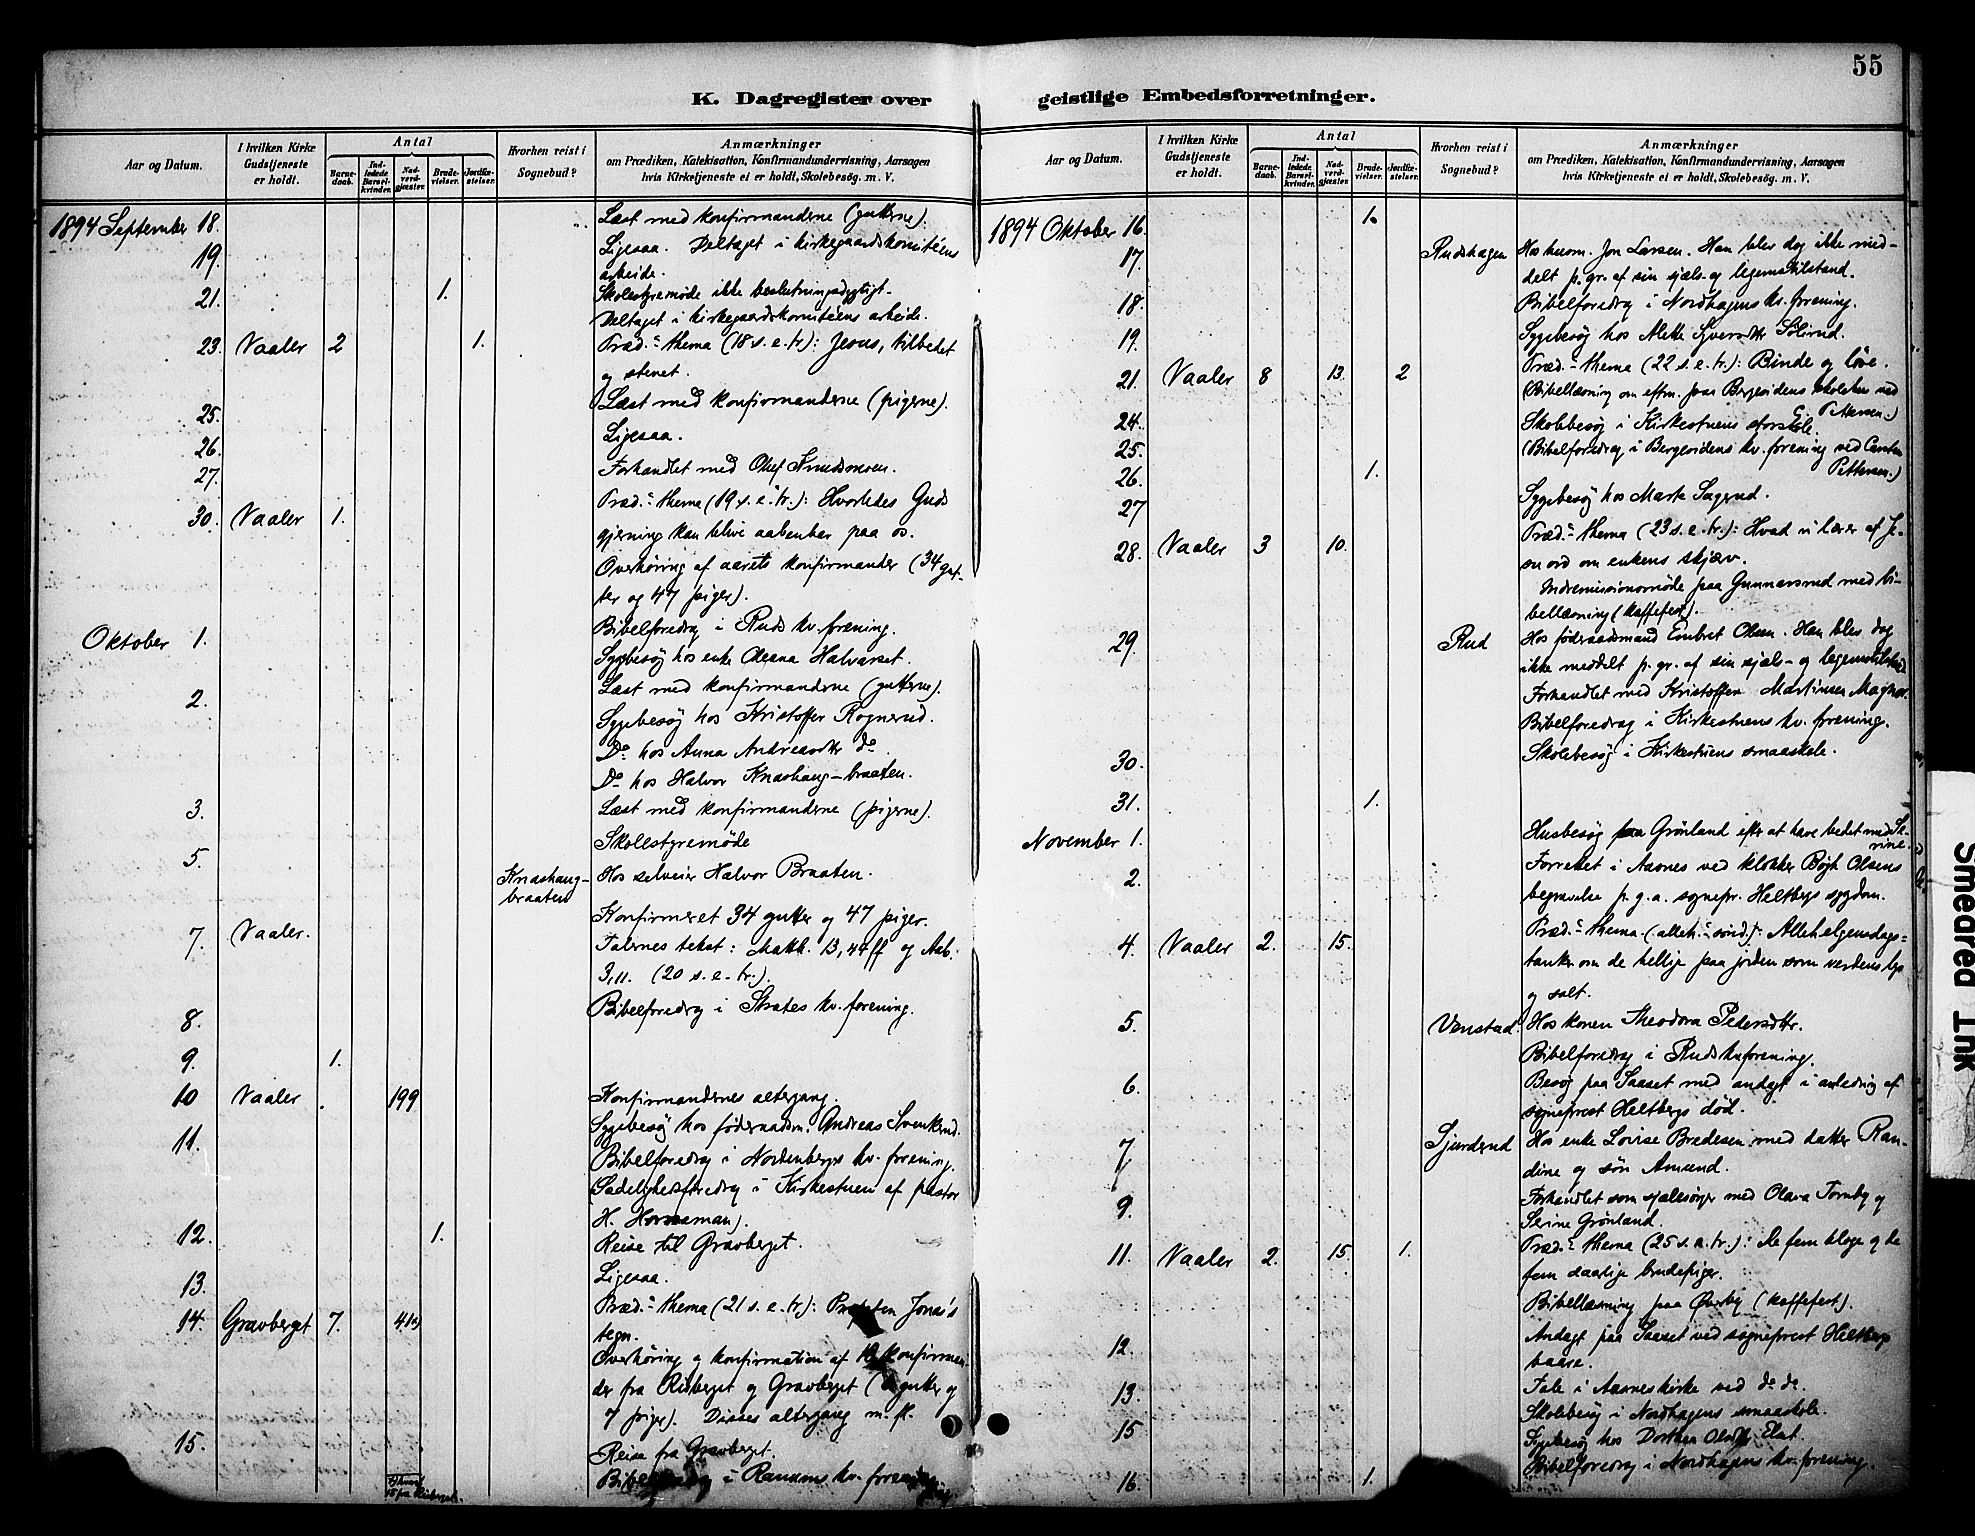 55
K. Dagregister over geistlige Embedsforretninger.
Aar og Datum.
I hvilken Kirke Gudstjeneste er holdt.
Antal
Barnedaab.
Indledede Barselkvinder.
Nadverdgjæster.
Brudevielser.
Jordfæstelser.
Hvorhen reist i Sognebud?
Anmærkninger
om Prædiken, Katekisation, Konfirmandundervisning, Aarsagen
hvis Kirketjeneste ei er holdt, Skolebesøg. m. V.
1894 September 18. Læst med konfirmanderne (gutterne).
19. Ligesaa. Deltaget i kirkegaardskomitéens
arbeide.
21. 1. Skolestyremøde ikke beslutningsdygtigt.
Deltaget i kirkegaardskomitéens arbeide.
23. Vaaler 2 1. Præd.- thema (18 s. e. tr.): Jesus, tilbedet
og stenet.
25. Læst med konfirmanderne (pigerne).
26. Ligesaa.
27. Forhandlet med Oluf
30. Vaaler 1. Præd.- thema (19 s. e. tr.): Hvorledes Guds
gjerning kan blive aabenbar paa os.
Overhøring af aarets konfirmander (34 gut-
ter og 47 piger).
Oktober 1. Bibelforedrag i Ruds kv. forening.
Sygebesøg hos enke Oleana Halvarset.
2. Læst med konfirmanderne (gutterne).
Sygebesøg hos Kristoffer Rognerud.
Do hos Anna Andreasdtr do
Do hos Halvor Knashaug-braaten.
3. Læst med konfirmanderne (pigerne).
Skolestyremøde
5. Knashaug-braaten Hos selveier Halvor Braaten.
7. Vaaler. Konfirmeret 34 gutter og 47 piger.
Talernes tekst: Matth. 13,44 ff og Aab.
3,11. (20 s. e. tr.).
8. Bibelforedrag i Strætes kv. forening.
9. 1.
10 Vaaler 199 Konfirmandernes altergang.
11. Sygebesøg hos føderaadsm. Andreas Svenkerud.
Bibelforedrag i Nordenbergs kv. forening.
Sædelighedsforedrag i Kirkestuen af pastor
H. Horneman).
12. 1. Reise til Gravberget.
13. Ligesaa.
14. Gravberget 7. 41 Præd.- thema (21 s. e. tr.): Profeten Jonas's
tegn.
Overhøring og konfirmation af konfirman-
der fra Risberget og Gravberget ( gutter og
7 piger). Disses altergang m. fl.
15. Reise fra Gravberget.
Bibelforedrag i kv. forening
15 fra Risberget.
Aar og Datum.
I hvilken Kirke Gudstjeneste er holdt.
Antal
Barnedaab.
Indledede Barselkvinder.
Nadverdgjæster.
Brudevielser.
Jordfæstelser.
Hvorhen reist i Sognebud?
Anmærkninger
om Prædiken, Katekisation, Konfirmandundervisning, Aarsagen
hvis Kirketjeneste ei er holdt, Skolebesøg. m. V.
1894 Oktober 16. 1.
17. Rudshagen Hos husm. Jon Larsen. Han blev dog ikke med-
delt p. gr. af sin sjæls- og legemstilstand.
18. Bibelforedrag i Nordhagens kv. forening.
19. Sygebesøg hos Alette Syversdtr Sölirud.
21. Vaaler 8 13. 2 Præd.- thema (22 s. e. tr.): Binde og löse.
(Bibellæsning om eftm. paa Bergesidens skolehus ved
G. Pettersen.)
24. Skolebesøg i Kirkestuens storskole.
25. (Bibelforedrag i Bergesidens kv. forening ved
Pettersen.)
26. 1.
27 Sygebesøg hos Marte Sagerud.
28. Vaaler 3 10. Præd.- thema (23 s. e. tr.): Hvad vi lærer af Je-
su ord om enkens skjærv.
Indremissionsmøde paa Gunnarsrud med bi-
bellæsning (kaffefest).
29. Rud Hos føderaadsmand Embret Olsen. Han blev dog
ikke meddelt p. gr. af sin sjæls- og legemstilstand.
Forhandlet med Kristoffer Martinsen Magnor.
Bibelforedrag i Kirkestuens kv. forening.
30. Skolebesøg i Kirkestuens smaaskole.
31. 1.
November 1. Husbesøg paa Grønland efter at have bedet med Se-
rine.
2. Forrettet i Aasnes ved klokker Olsens
begravelse p. g. a. sognepr. Heltbergs sygdom.
4. Vaaler 2. 15. Præd.- thema (alleh.- sønd.): Allehelgensdags-
tanker om de hellige paa jorden som verdens lys
og salt.
5. Vanstad. Hos konen Theodora Pedersdtr.
Bibelforedrag i Ruds kv forening.
6. Besøg paa Saaset med andagt i anledning af
sogneprest Heltbergs død.
7 Sjurderud Hos enke Lovise Bredesen med datter Ran-
dine og søn Amund.
9. Forhandlet som sjælesørger med Olava Tornby og
Serine Grønland.
11. Vaaler 2. 15. 1. Præd.- thema (25 s. e. tr.): De fem kloge og de
fem daarlige brudepiger.
Bibellæsning paa Øverby (kaffefest).
12. Andagt paa Saaset ved sogneprest Heltbergs
baare.
13. Tale i Aasnes kirke ved do do.
15 Skolebesøg i Nordhagens smaaskole.
Sygebesøg hos Dorthea Olsdtr
16. 1. Bibelforedrag i Nordhagens kv. forening.
Smeared Ink